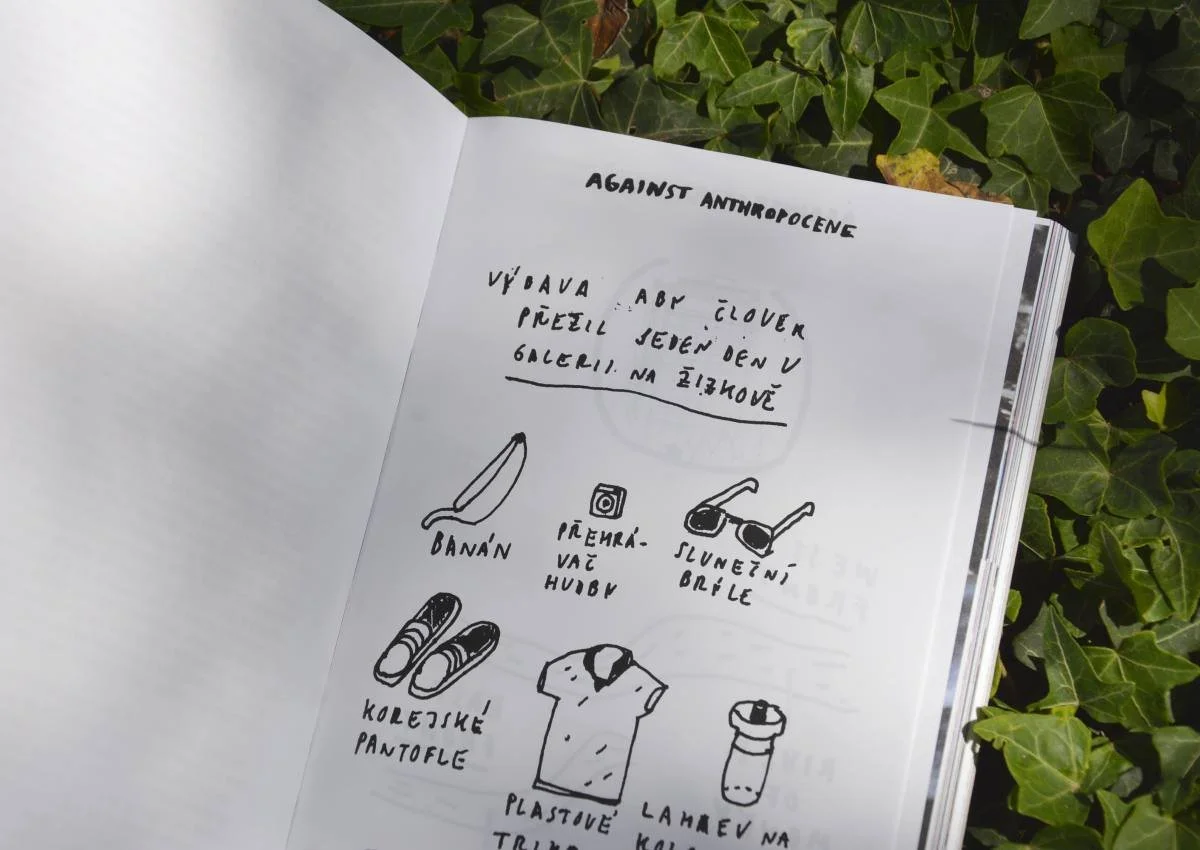 AGAINST ANTHROPOCENE
VÝBAVA ABY ČLOVĚK
PŘEŽIL JEDEN DEN V
GALERII NA ŽIŽKOVĚ
BANÁN
PŘEHRÁ-
VAČ
HUDBY
SLUNEČNÍ
BRÝLE
KOREJSKÉ
PANTOFLE
PLASTOVÉ
TRIKO
LAHREV NA